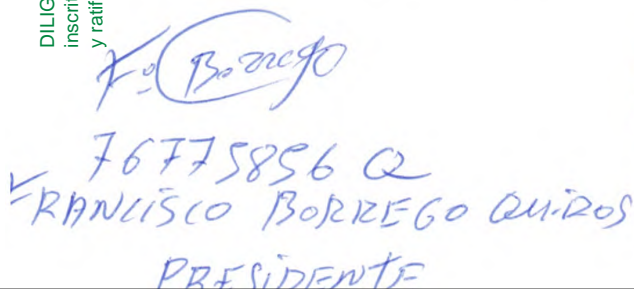 DILIG
inscri
y ratif
Fº Borrego
76775856 Q
FRANCISCO BORREGO QUIROS
PRESIDENTE